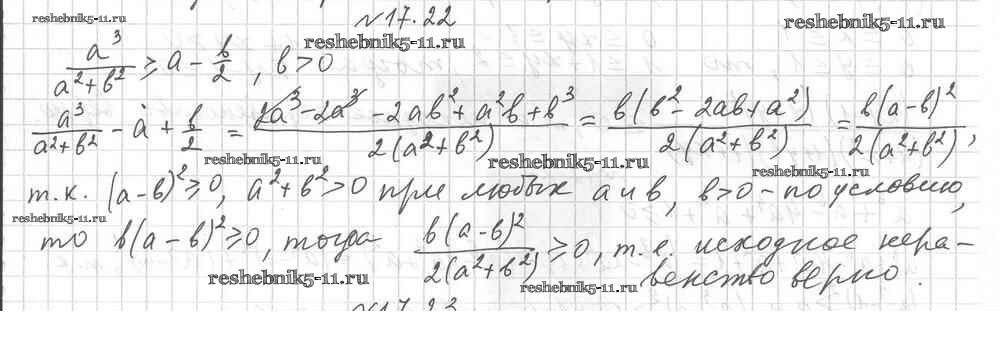 №17.22
reshebnik5-11.ru reshebnik5-11.ru
reshebnik5-11.ru
a³/(a²+b²) ≥ a - b/2, b>0
a³/(a²+b²) - a + b/2 = (2a³-2a³-2ab²+a²b+b³)/(2(a²+b²)) = b(b²-2ab+a²)/(2(a²+b²)) = b(a-b)²/(2(a²+b²)),
reshebnik5-11.ru reshebnik5-11.ru reshebnik5-11.ru
т.к. (a-b)²≥0, a²+b²>0 при любых a и b, b>0 - по условию,
reshebnik5-11.ru
то b(a-b)²≥0, тогда b(a-b)²/(2(a²+b²)) ≥0, т.е. исходное нера-
венство верно.
reshebnik5-11.ru reshebnik5-11.ru
№17.23